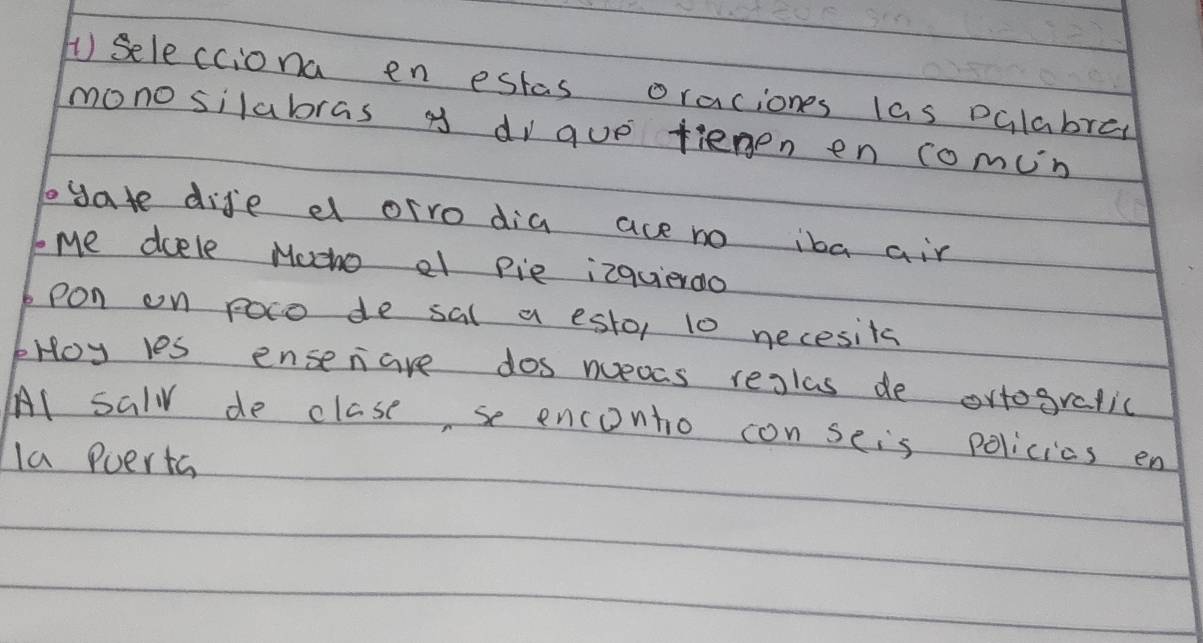 1) Selecciona en estas oraciones las palabras
monosilabras y di que tienen en común
• yate dije el otro dia ace no iba air
• Me duele Mucho el Pie izquierdo
• Pon un poco de sal a esto, lo necesita
• Hoy les enseñare dos nuevas reglas de ortografic
Al salir de clase, se encontro con seis policias en
la Puerta